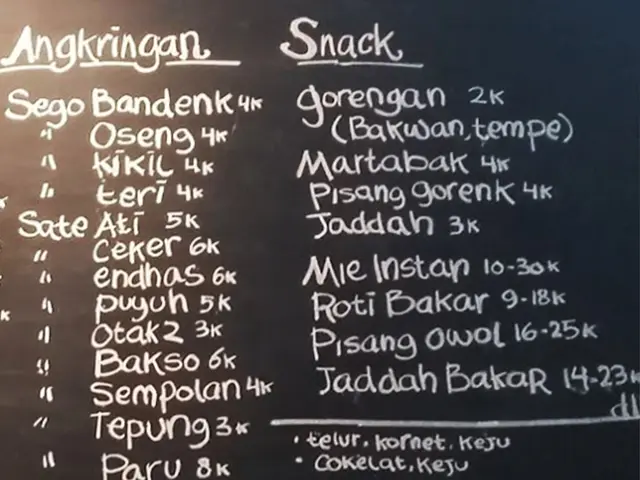 Angkringan
Sego Bandenk 4K
" Oseng 4K
" Kikil 4K
" teri 4K
Sate Ati 5K
" Ceker 6K
" endhas 6K
" puyuh 5K
" Otak2 3K
" Bakso 6K
" Sempolan 4K
" Tepung 3K
" Paru 8K
Snack
gorengan 2K
(Bakwan, tempe)
Martabak 4K
Pisang gorenk 4K
Jaddah 3K
Mie Instan 10-30K
Roti Bakar 9-18K
Pisang Owol 16-25K
Jaddah Bakar 14-23K
dll
• telur, kornet, keju
• Cokelat, keju